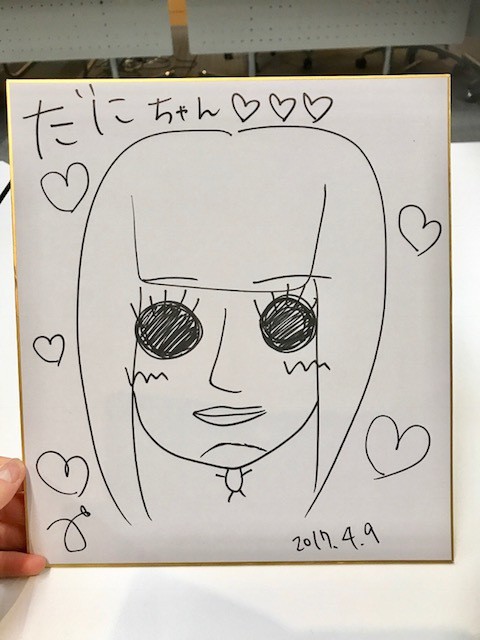 だにちゃん♡♡♡
2017.4.9